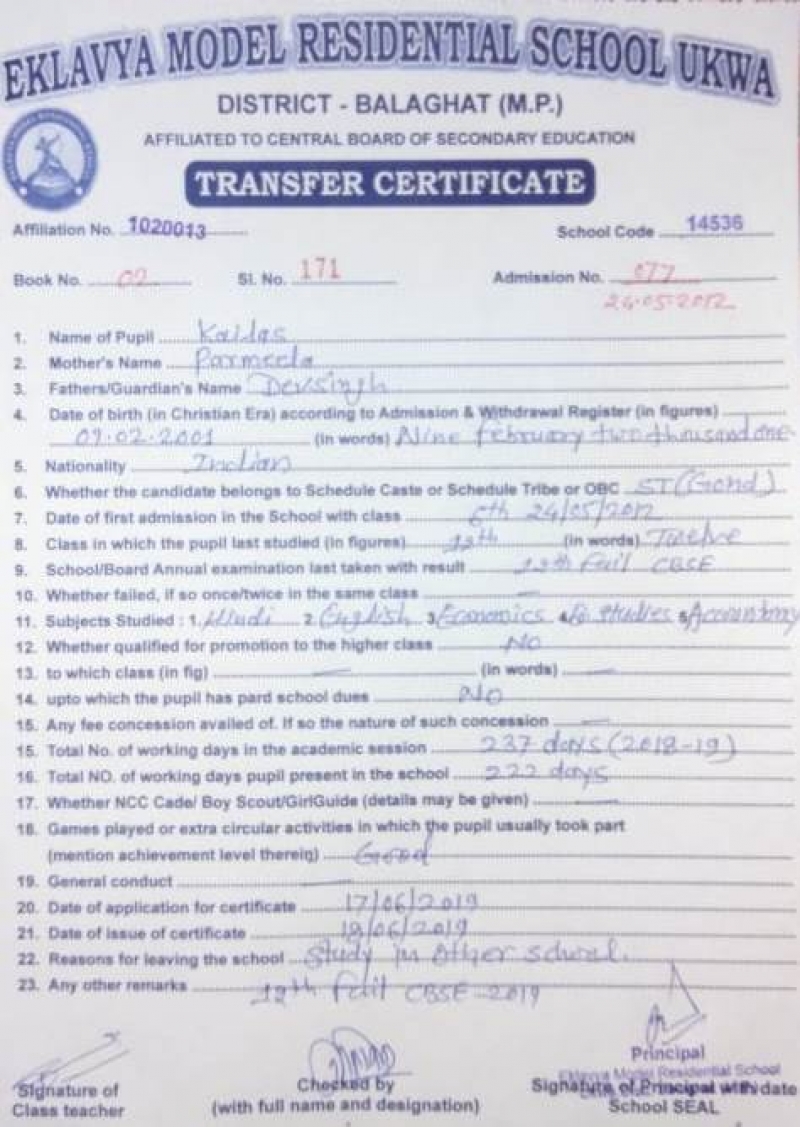 EKLAVYA MODEL RESIDENTIAL SCHOOL UKWA
DISTRICT - BALAGHAT (M.P.)
AFFILIATED TO CENTRAL BOARD OF SECONDARY EDUCATION
TRANSFER CERTIFICATE
Affiliation No. 1020013 School Code 14536
Book No. 02 Sl. No. 171 Admission No. 077
24.05.2012
1. Name of Pupil Kaldas
2. Mother's Name Parmeela
3. Fathers/Guardian's Name Devsingh
4. Date of birth (in Christian Era) according to Admission & Withdrawal Register (in figures)
09.02.2001 (in words) Nine february two thousand one
5. Nationality Indian
6. Whether the candidate belongs to Schedule Caste or Schedule Tribe or OBC ST (Gond)
7. Date of first admission in the School with class 6th 24/05/2012
8. Class in which the pupil last studied (in figures) 12th (in words) Twelve
9. School/Board Annual examination last taken with result 12th fail CBSE
10. Whether failed, if so once/twice in the same class
11. Subjects Studied : 1. Hindi 2 English 3 Economics 4 B. studies 5 Accountancy
12. Whether qualified for promotion to the higher class No
13. to which class (in fig) (in words)
14. upto which the pupil has pard school dues No
15. Any fee concession availed of. If so the nature of such concession
15. Total No. of working days in the academic session 237 days (2018-19)
16. Total NO. of working days pupil present in the school 222 days
17. Whether NCC Cade/ Boy Scout/GirlGuide (details may be given)
18. Games played or extra circular activities in which the pupil usually took part
(mention achievement level therein) Good
19. General conduct
20. Date of application for certificate 17/06/2019
21. Date of issue of certificate 18/06/2019
22. Reasons for leaving the school Study in other school.
23. Any other remarks 12th fail CBSE-2019
Principal
Eklavya Model Residential School
Signature of Checked by Signature of Principal with date
Class teacher (with full name and designation) School SEAL